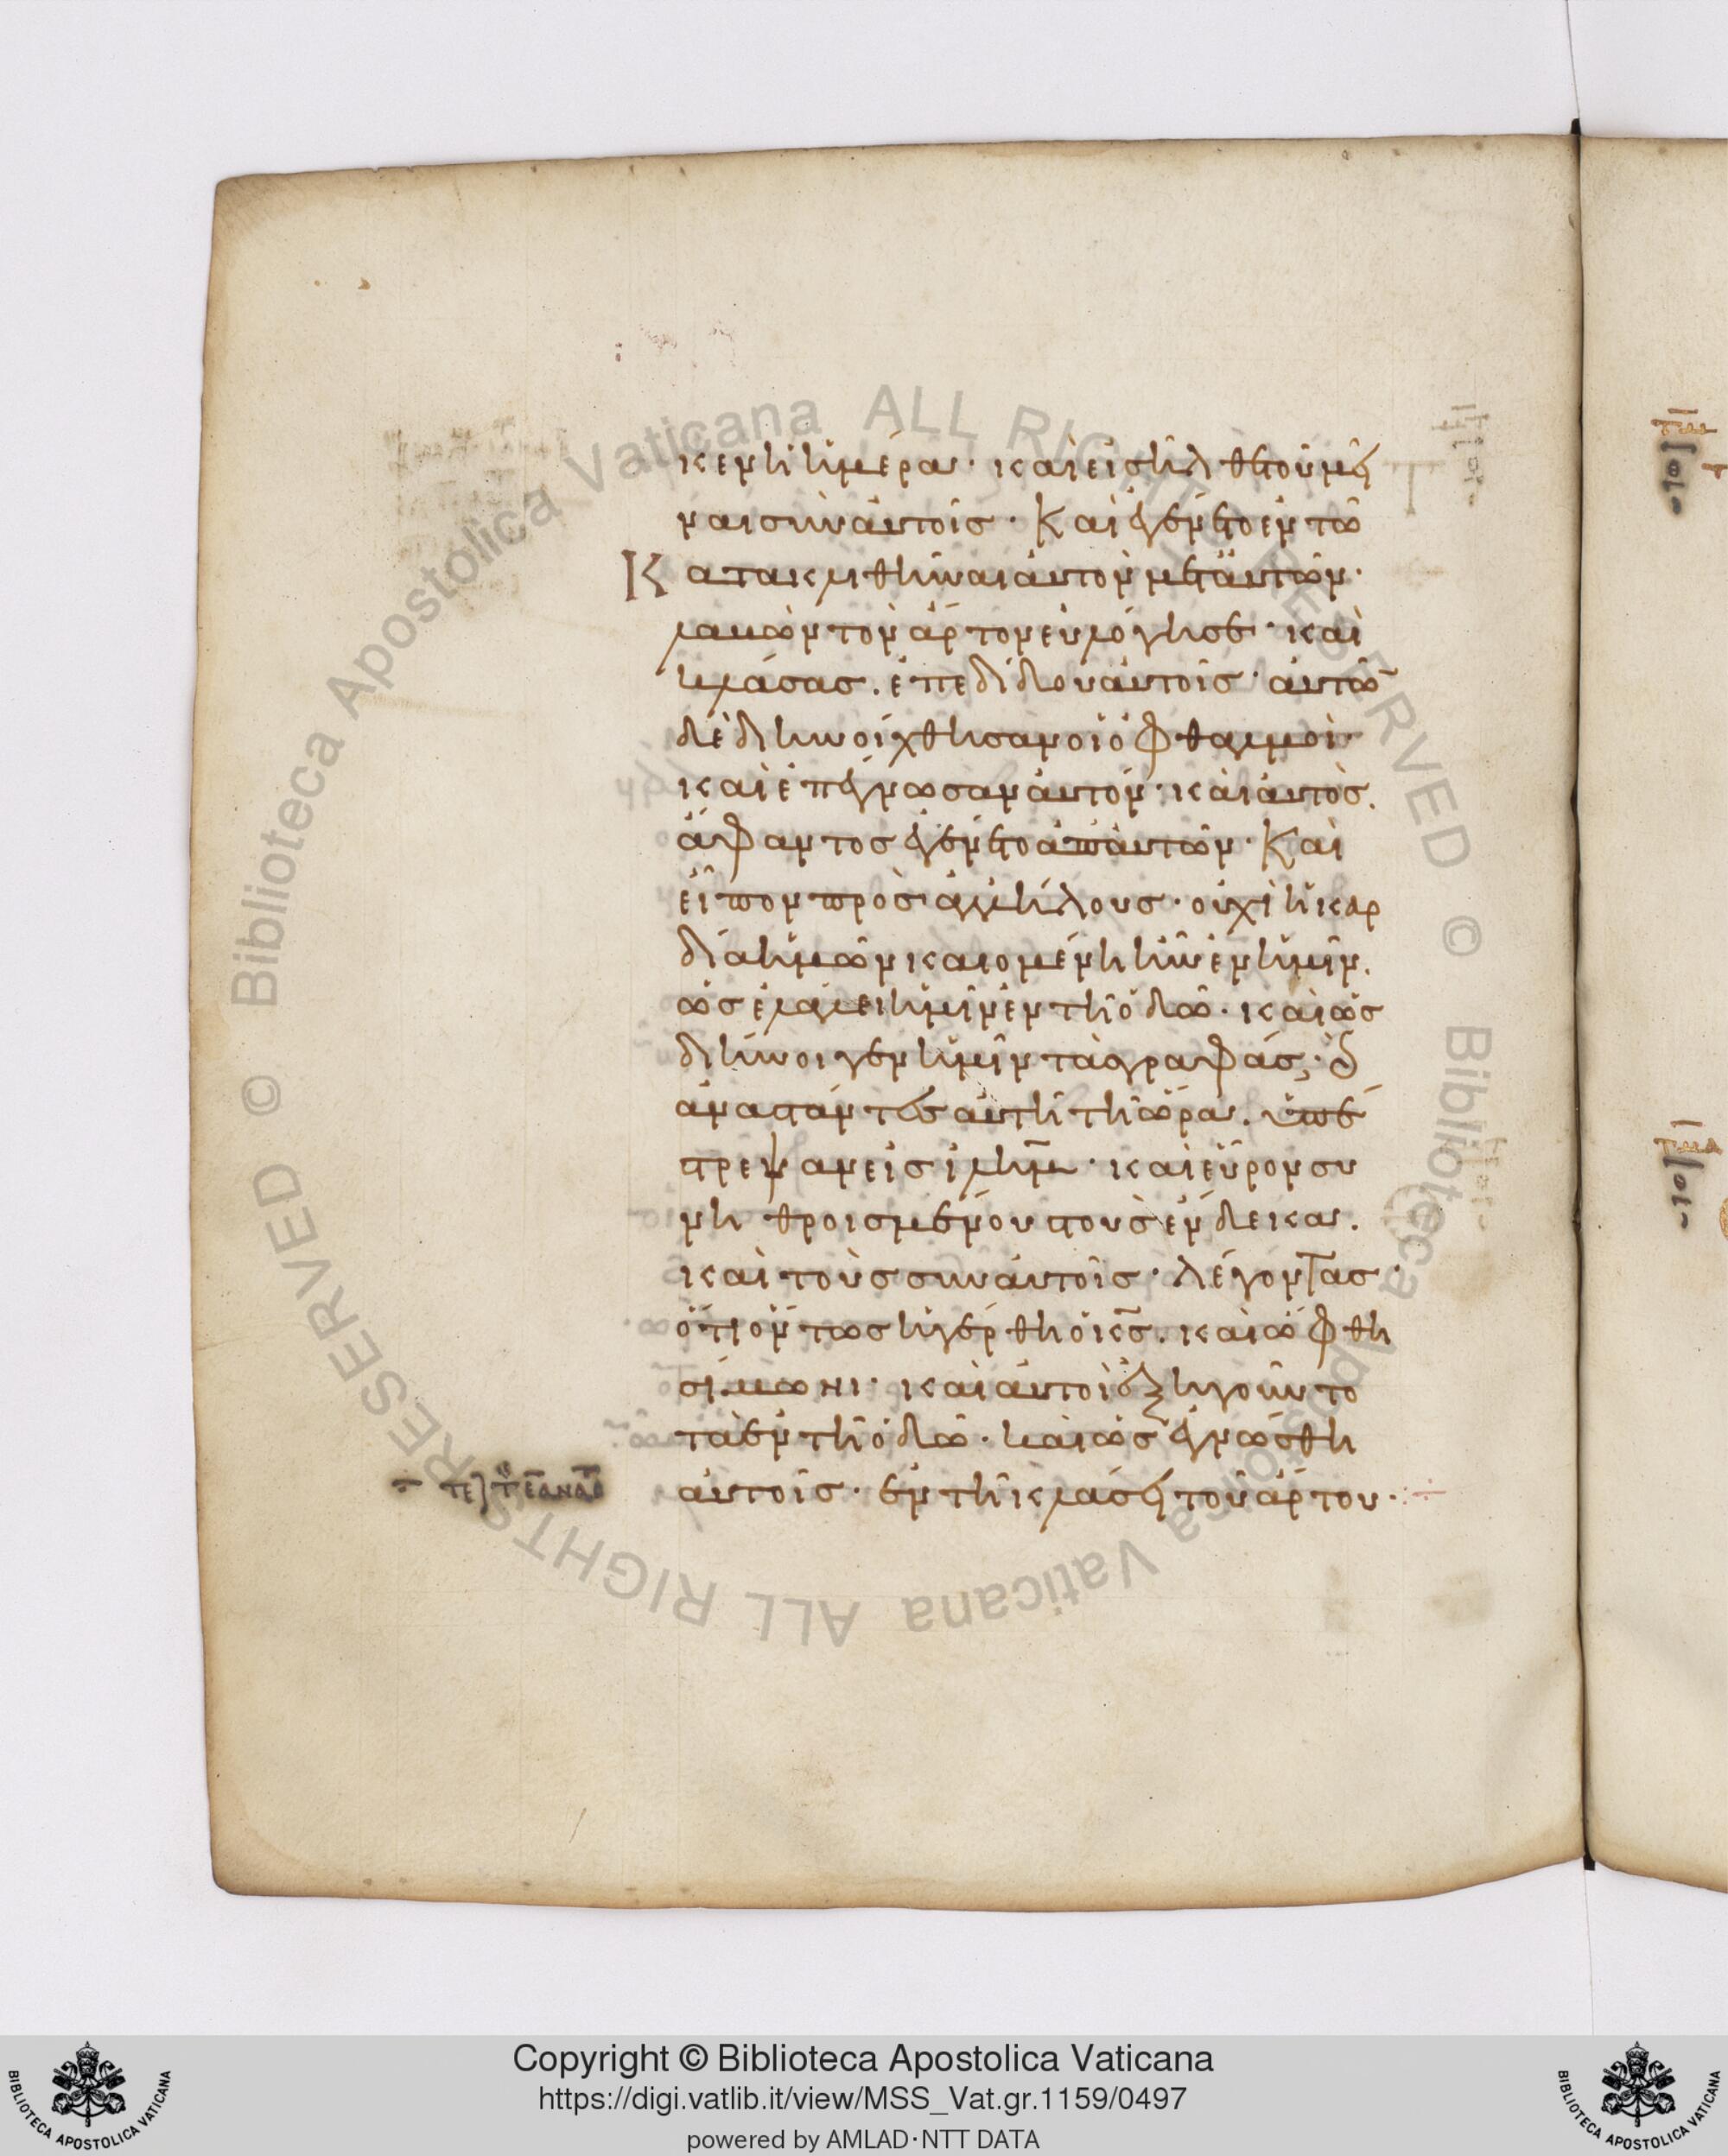 κεν ἡ ἡμέρα· καὶ εἰσῆλθε τοῦ μεῖ
ναι σὺν αὐτοῖς· Καὶ ἐγένετο ἐν τῶ
Κατακλιθῆναι αὐτὸν μετ αὐτῶν·
λαβὼν τὸν ἄρτον εὐλόγησε· καὶ
κλάσας. ἐπεδίδου αὐτοῖς· αὐτῶ̅
δὲ διηνοίχθησαν οἱ ὀφθαλμοὶ·
καὶ ἐπέγνωσαν αὐτόν· καὶ αὐτὸς.
ἄφαντος ἐγένετο ἀπ αὐτῶν· Καὶ
εἶπον πρὸς ἀλλήλους· οὐχὶ ἡ καρ
δία ἡμῶν καιομένη ἦν ἐν ἡμῖν.
ὡς ἐλάλει ἡμῖν ἐν τῆ ὁδῶ· καὶ ὡς
διήνοιγεν ἡμῖν τὰς γραφάς; κ
ἀναστάντες αὐτῆ τῆ ὥρα. ὑπέ
στρεψαν εἰς ἰλη̅μ· καὶ εὗρον συ
νηθροισμένους τοὺς ἕνδεκα.
καὶ τοὺς σὺν αὐτοῖς· λέγοντας·
ὅτι ὄντως ἠγέρθη ὁ κ̅ς. καὶ ὤφθη
σίμωνι· καὶ αὐτοὶ ἐξηγοῦντο
τὰ ἐν τῆ ὁδῶ· καὶ ὡς ἐγνώσθη
αὐτοῖς· ἐν τῆ κλάσει τοῦ ἄρτου·
Copyright © Biblioteca Apostolica Vaticana
https://digi.vatlib.it/view/MSS_Vat.gr.1159/0497
powered by AMLAD·NTT DATA
BIBLIOTECA APOSTOLICA VATICANA
BIBLIOTECA APOSTOLICA VATICANA
© Biblioteca Apostolica Vaticana ALL RIGHTS RESERVED
© Biblioteca Apostolica Vaticana ALL RIGHTS RESERVED